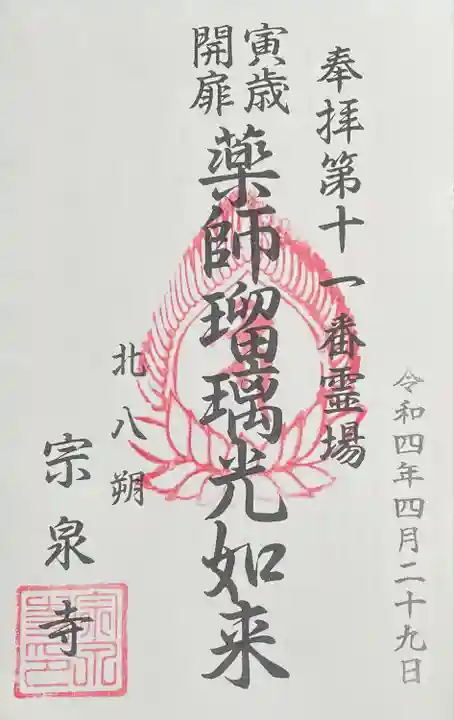 令和四年四月二十九日
奉拝第十一番霊場
寅歳
開扉
薬師瑠璃光如来
北八朔
宗泉寺